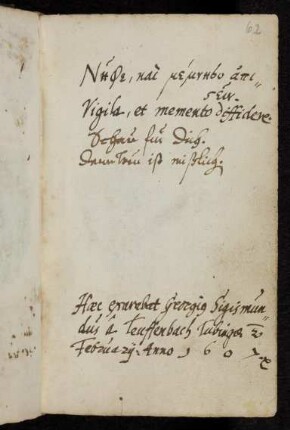 62
Νῆφε, καὶ μέμνησο ἀπι-
ςεῖν.
Vigila, et memento diffidere
Schau für Dich.
dann Treu ist mißlich.
Hæc exarabat Georgiꝰ Sigismun-
dus à Teuffenbach Tubingæ 2
Februarij: Anno 1607